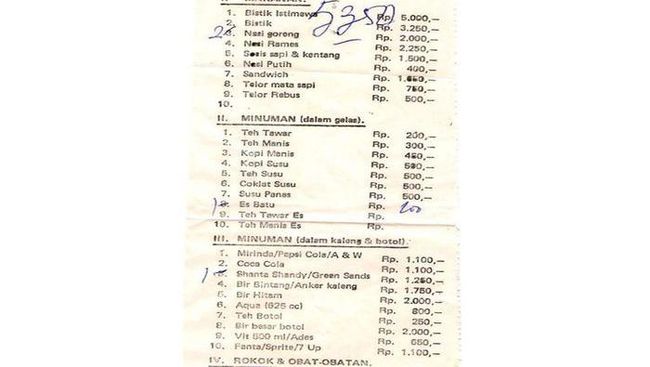 1. Bistik Istimewa Rp. 5.000,—
5350
2. Bistik Rp. 3.250,—
2 3. Nasi goreng Rp. 2.000,—
4. Nasi Rames Rp. 2,250,—
5. Sosis sapi & kentang Rp. 1,500,—
6. Nasi Putih Rp. 400,—
7. Sandwich Rp.
8. Telor mata sapi Rp. 750,—
9. Telor Rebus Rp. 500,—
10.
II. MINUMAN (dalam gelas).
1. Teh Tawar Rp. 200,—
2. Teh Manis Rp. 300,—
3. Kopi Manis Rp. 450,—
4. Kopi Susu Rp.
5. Teh Susu Rp. 500,—
6. Coklat Susu Rp. 500,—
7. Susu Panas Rp. 500,—
1 8. Es Batu Rp. 100
9. Teh Tawar Es Rp.
10. Teh Manis Es Rp.
III. MINUMAN (dalam kaleng & botol).
1. Mirinda/Pepsi Cola/A & W Rp. 1,100,—
2. Coca Cola Rp. 1,100,—
1 3. Shanta Shandy/Green Sands Rp. 1,250,—
4. Bir Bintang/Anker kaleng Rp. 1,750,—
5. Bir Hitam Rp. 2,000,—
6. Aqua (625 cc) Rp. 800,—
7. Teh Botol Rp. 250,—
8. Bir besar botol Rp. 2,000,—
9. Vit 500 ml/Ades Rp. 650,—
10. Fanta/Sprite/7 Up Rp. 1,100,—
IV. ROKOK & OBAT-OBATAN.